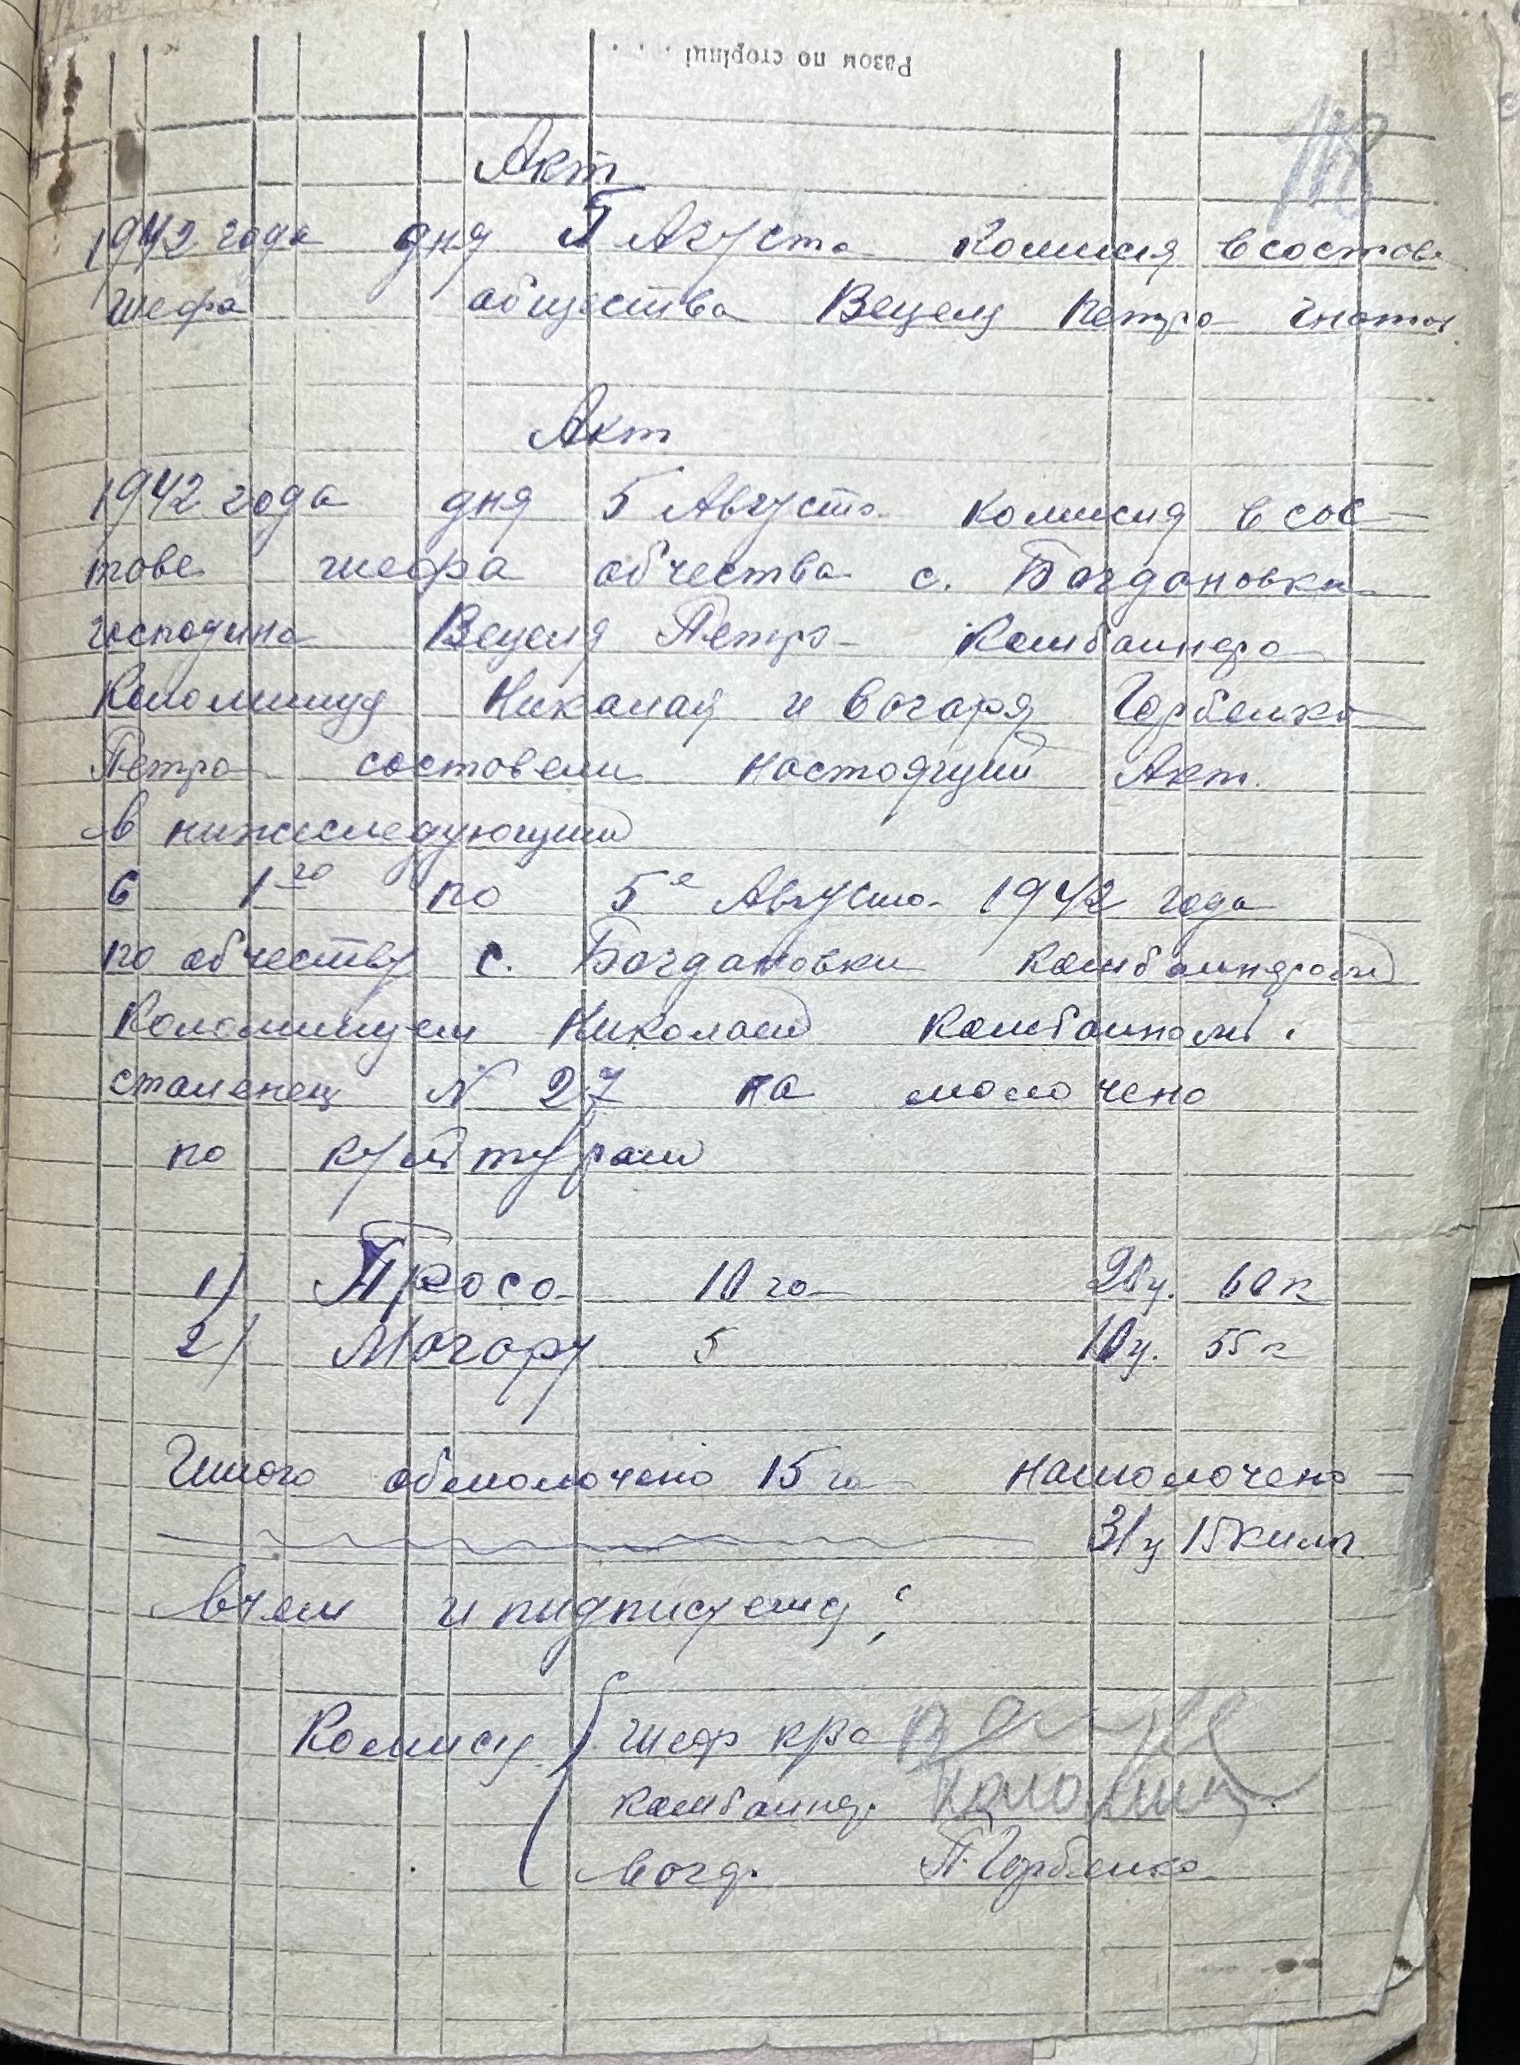 Разом по сторінці . . . .
118
Акт
1942 года дня 5 Августа Комисия в составе
шефа общества Вецеля Петра Гнатов.
Акт
1942 года дня 5 Августа комисия в сос-
тове шефа обчества с. Богдановки
господина Вецеля Петра Комбаинера
Коломийця Николай и вогаря Горбенко
Петра составели настоящий Акт.
в нижеследующим
с 1го по 5е Августа 1942 года
по обчеству с. Богдановки комбаинером
Коломийцем Николаем Комбаином
сталенец N 27 на молочено
по культурам
1) Просо 10 га 20ц. 60 к
2) Могару 5 10ц. 55 к
Итого обмолочено 15 га намолочено-
31ц 15 килг.
В чем и пидписуемся
Комисия шеф кра
комбаинер. Коломиец
Вогар. П. Горбенко